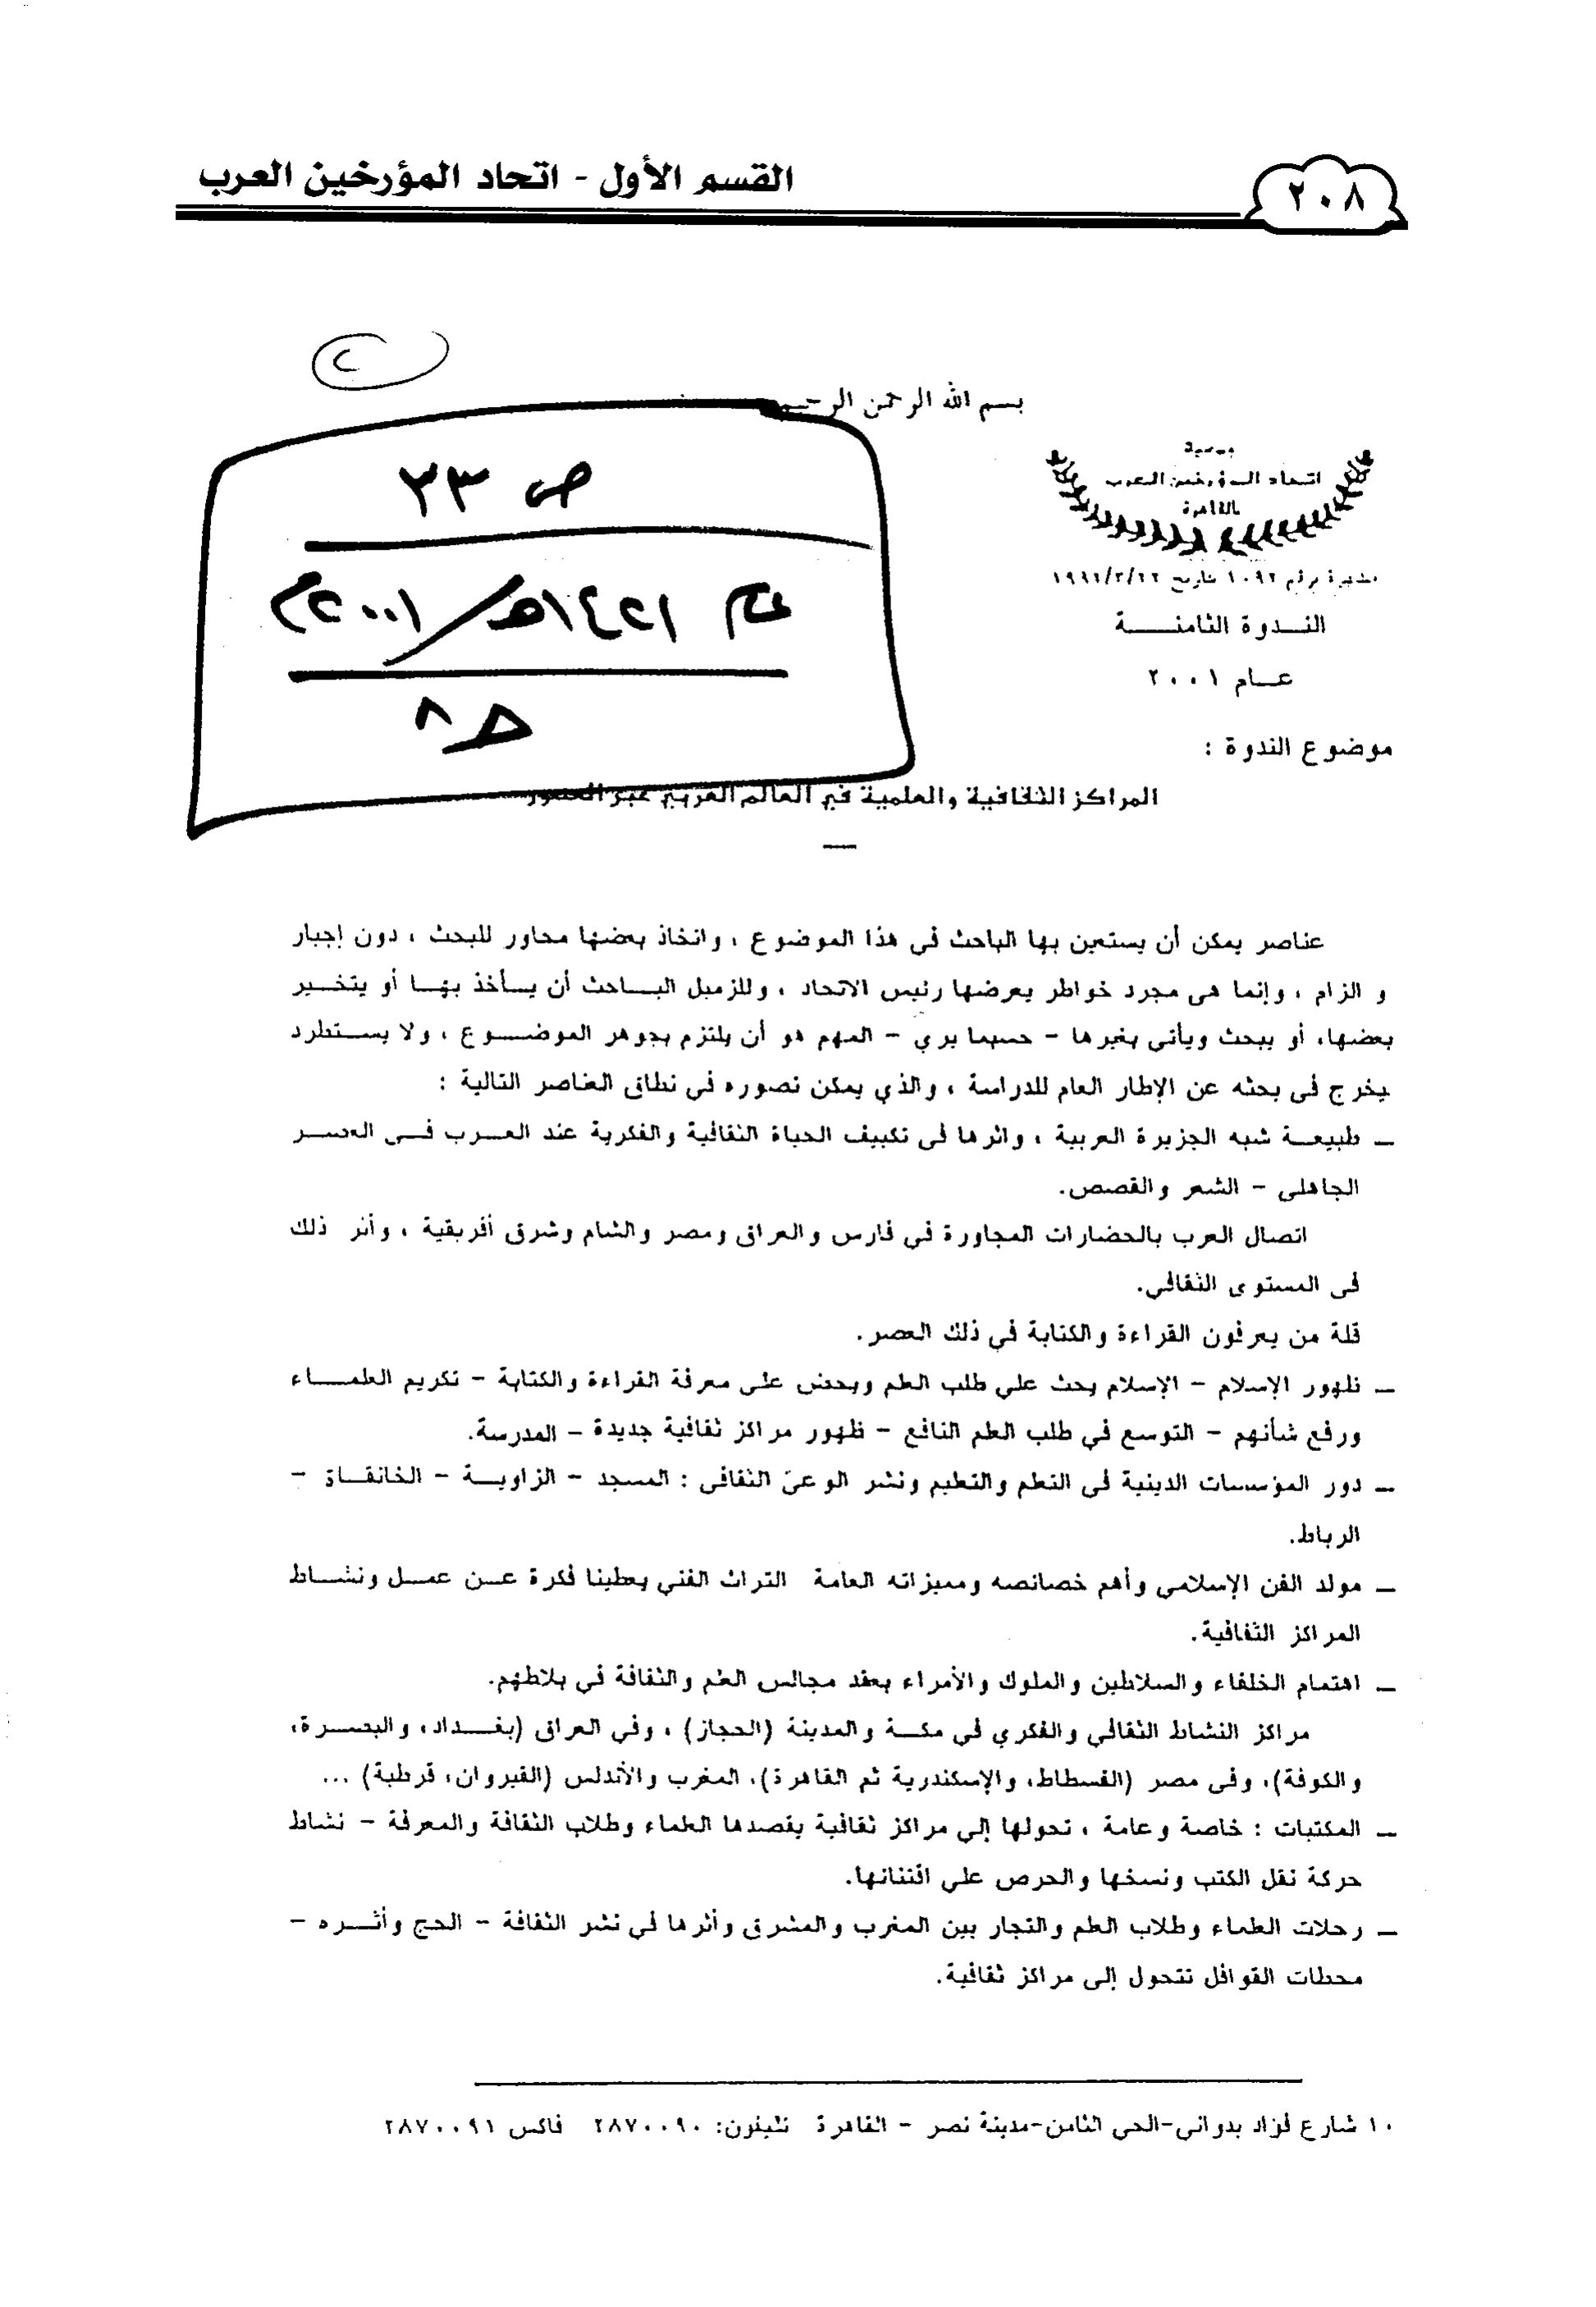 القسم الأول - اتحاد المؤرخين العرب
٢٠٨
بسم الله الرحمن الرحيم
ص ٣٣
عام ١٤٢١هـ/٢٠٠١م
ط ٨
اتحاد المؤرخين العرب
بالقاهرة
مشهرة برقم ١٠٩٢ بتاريخ
الندوة الثامنـــــة
عـــام ٢٠٠١
موضوع الندوة :
المراكز الثقافية والعلمية في العالم العربي عبر العصور
عناصر يمكن أن يستعين بها الباحث في هذا الموضوع ، واتخاذ بعضها محاور للبحث ، دون إجبار
و الزام ، وإنما هى مجرد خواطر يعرضها رئيس الاتحاد ، وللزميل البـــاحث أن يـــأخذ بهـــا أو يتخـــير
بعضها، أو يبحث ويأتي بغيرها - حسبما يري - المهم هو أن يلتزم بجوهر الموضـــوع ، ولا يســـتطرد
يخرج في بحثه عن الإطار العام للدراسة ، والذي يمكن تصوره في نطاق العناصر التالية :
– طبيعـــة شبه الجزيرة العربية ، واثرها في تكييف الحياة الثقافية والفكرية عند العـــرب فـــى العصـــر
الجاهلى - الشعر والقصص.
اتصال العرب بالحضارات المجاورة في فارس والعراق ومصر والشام وشرق أفريقية ، وأثر ذلك
فى المستوى الثقافي.
قلة من يعرفون القراءة والكتابة في ذلك العصر.
– ظهور الإسلام - الإسلام يحث علي طلب العلم ويحض على معرفة القراءة والكتابة - تكريم العلمـــاء
ورفع شأنهم - التوسع في طلب العلم النافع - ظهور مراكز ثقافية جديدة - المدرسة.
– دور المؤسسات الدينية فى التعلم والتعليم ونشر الوعى الثقافى : المسجد - الزاويـــة - الخانقـــاة -
الرباط.
– مولد الفن الإسلامى وأهم خصائصه ومميزاته العامة التراث الفني يعطينا فكرة عـــن عمـــل ونشـــاط
المراكز الثقافية.
– اهتمام الخلفاء والسلاطين والملوك والأمراء بعقد مجالس العلم والثقافة في بلاطهم.
مراكز النشاط الثقافي والفكري في مكـــة والمدينة (الحجاز) ، وفي العراق (بغـــداد، والبصـــرة،
والكوفة)، وفى مصر (الفسطاط، والإسكندرية ثم القاهرة)، المغرب والأندلس (القيروان، قرطبة) ...
– المكتبات : خاصة وعامة ، تحولها إلي مراكز ثقافية يقصدها العلماء وطلاب الثقافة والمعرفة - نشاط
حركة نقل الكتب ونسخها والحرص علي اقتنائها.
– رحلات العلماء وطلاب العلم والتجار بين المغرب والمشرق وأثرها في نشر الثقافة - الحج وأثـــره -
محطات القوافل تتحول إلى مراكز ثقافية.
١٠ شارع فؤاد بدواني-الحي الثامن-مدينة نصر - القاهرة تليفون: ٢٨٧٠٠٩٠ فاكس ٢٨٧٠٠٩١